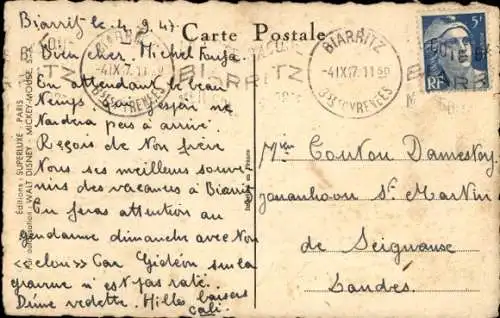 Biarritz le 4.9.47.
Carte Postale
Bien cher Michel
On attendant le beau
temps que j'espère ne
tardera pas à arrivé.
Reçois de ton frère
nos ses meilleurs souve-
nirs des vacances à Biarritz
Tu feras attention au
gendarme dimanche avec ton
«clou» Car Gédéon sur la
gravure n'est pas raté.
D'une vedette. Milles baisers
Editions : SUPERLUXE - PARIS
Par autorisation : WALT DISNEY - MICKEY-MOUSE. S. A.
BIARRITZ
-4 IX 47. 11 50
BSES PYRENEES
BIARRITZ
BIARRITZ
-4 IX 47. 11 50
BSES PYRENEES
5F
RF
Couton Damestoy
St Martin
de Seignanse
Landes.